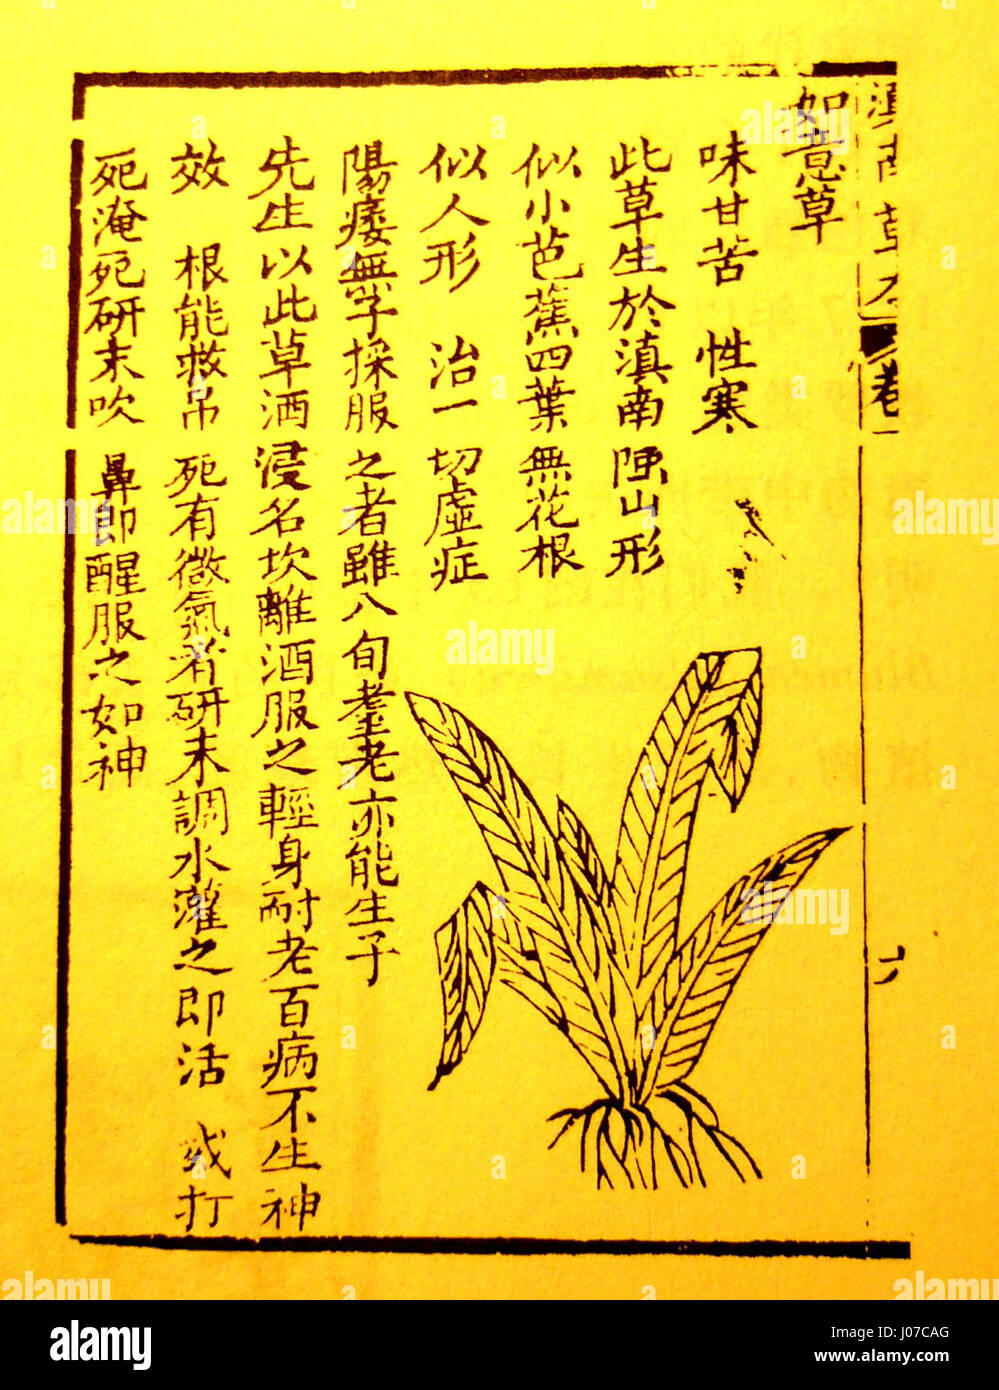 滇南草本 卷一
如意草
味甘苦 性寒
此草生於滇南陲山形
似小芭蕉四葉無花根
似人形 治一切虛症
陽痿無子採服之者雖八旬耄老亦能生子
先生以此草酒浸名坎離酒服之輕身耐老百病不生神
效 根能救吊死有微氣者研末調水灌之即活 或打
死淹死研末吹鼻即醒服之如神
alamy
alamy stock photo
J07CAG
www.alamy.com